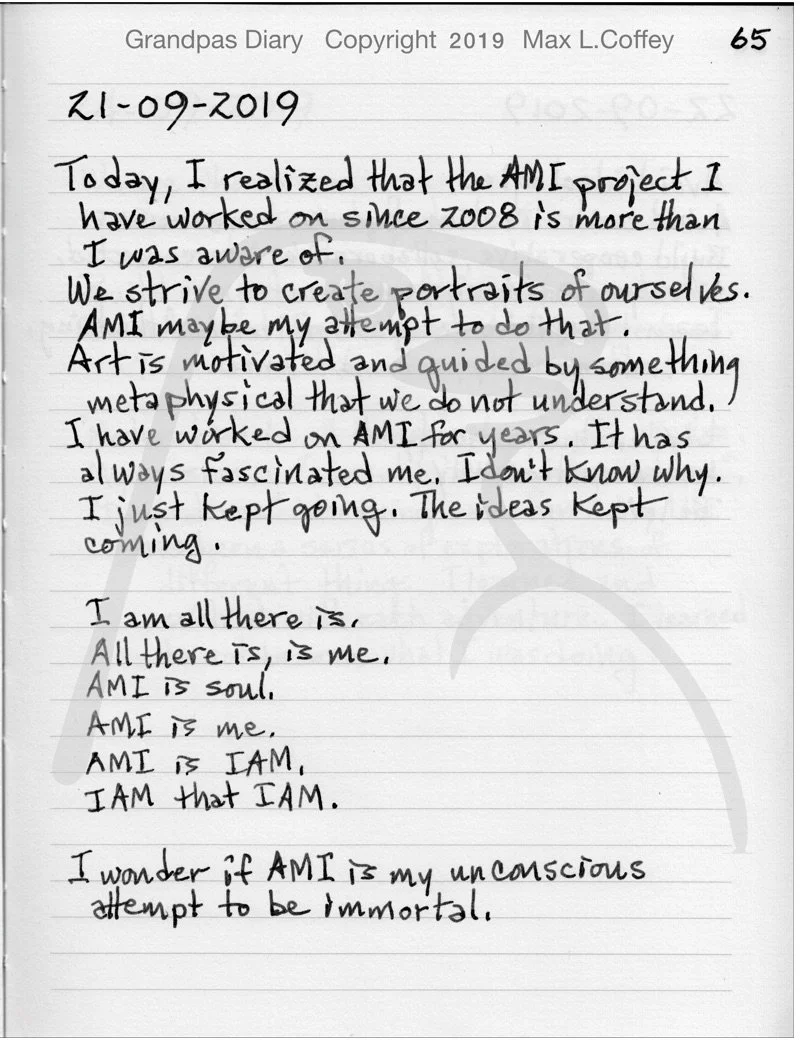 Grandpas Diary Copyright 2019 Max L.Coffey 65
21-09-2019
Today, I realized that the AMI project I
have worked on since 2008 is more than
I was aware of.
We strive to create portraits of ourselves.
AMI maybe my attempt to do that.
Art is motivated and guided by something
metaphysical that we do not understand.
I have worked on AMI for years. It has
always fascinated me. I don't know why.
I just kept going. The ideas kept
coming.
I am all there is.
All there is, is me.
AMI is soul.
AMI is me.
AMI is IAM.
IAM that IAM.
I wonder if AMI is my unconscious
attempt to be immortal.